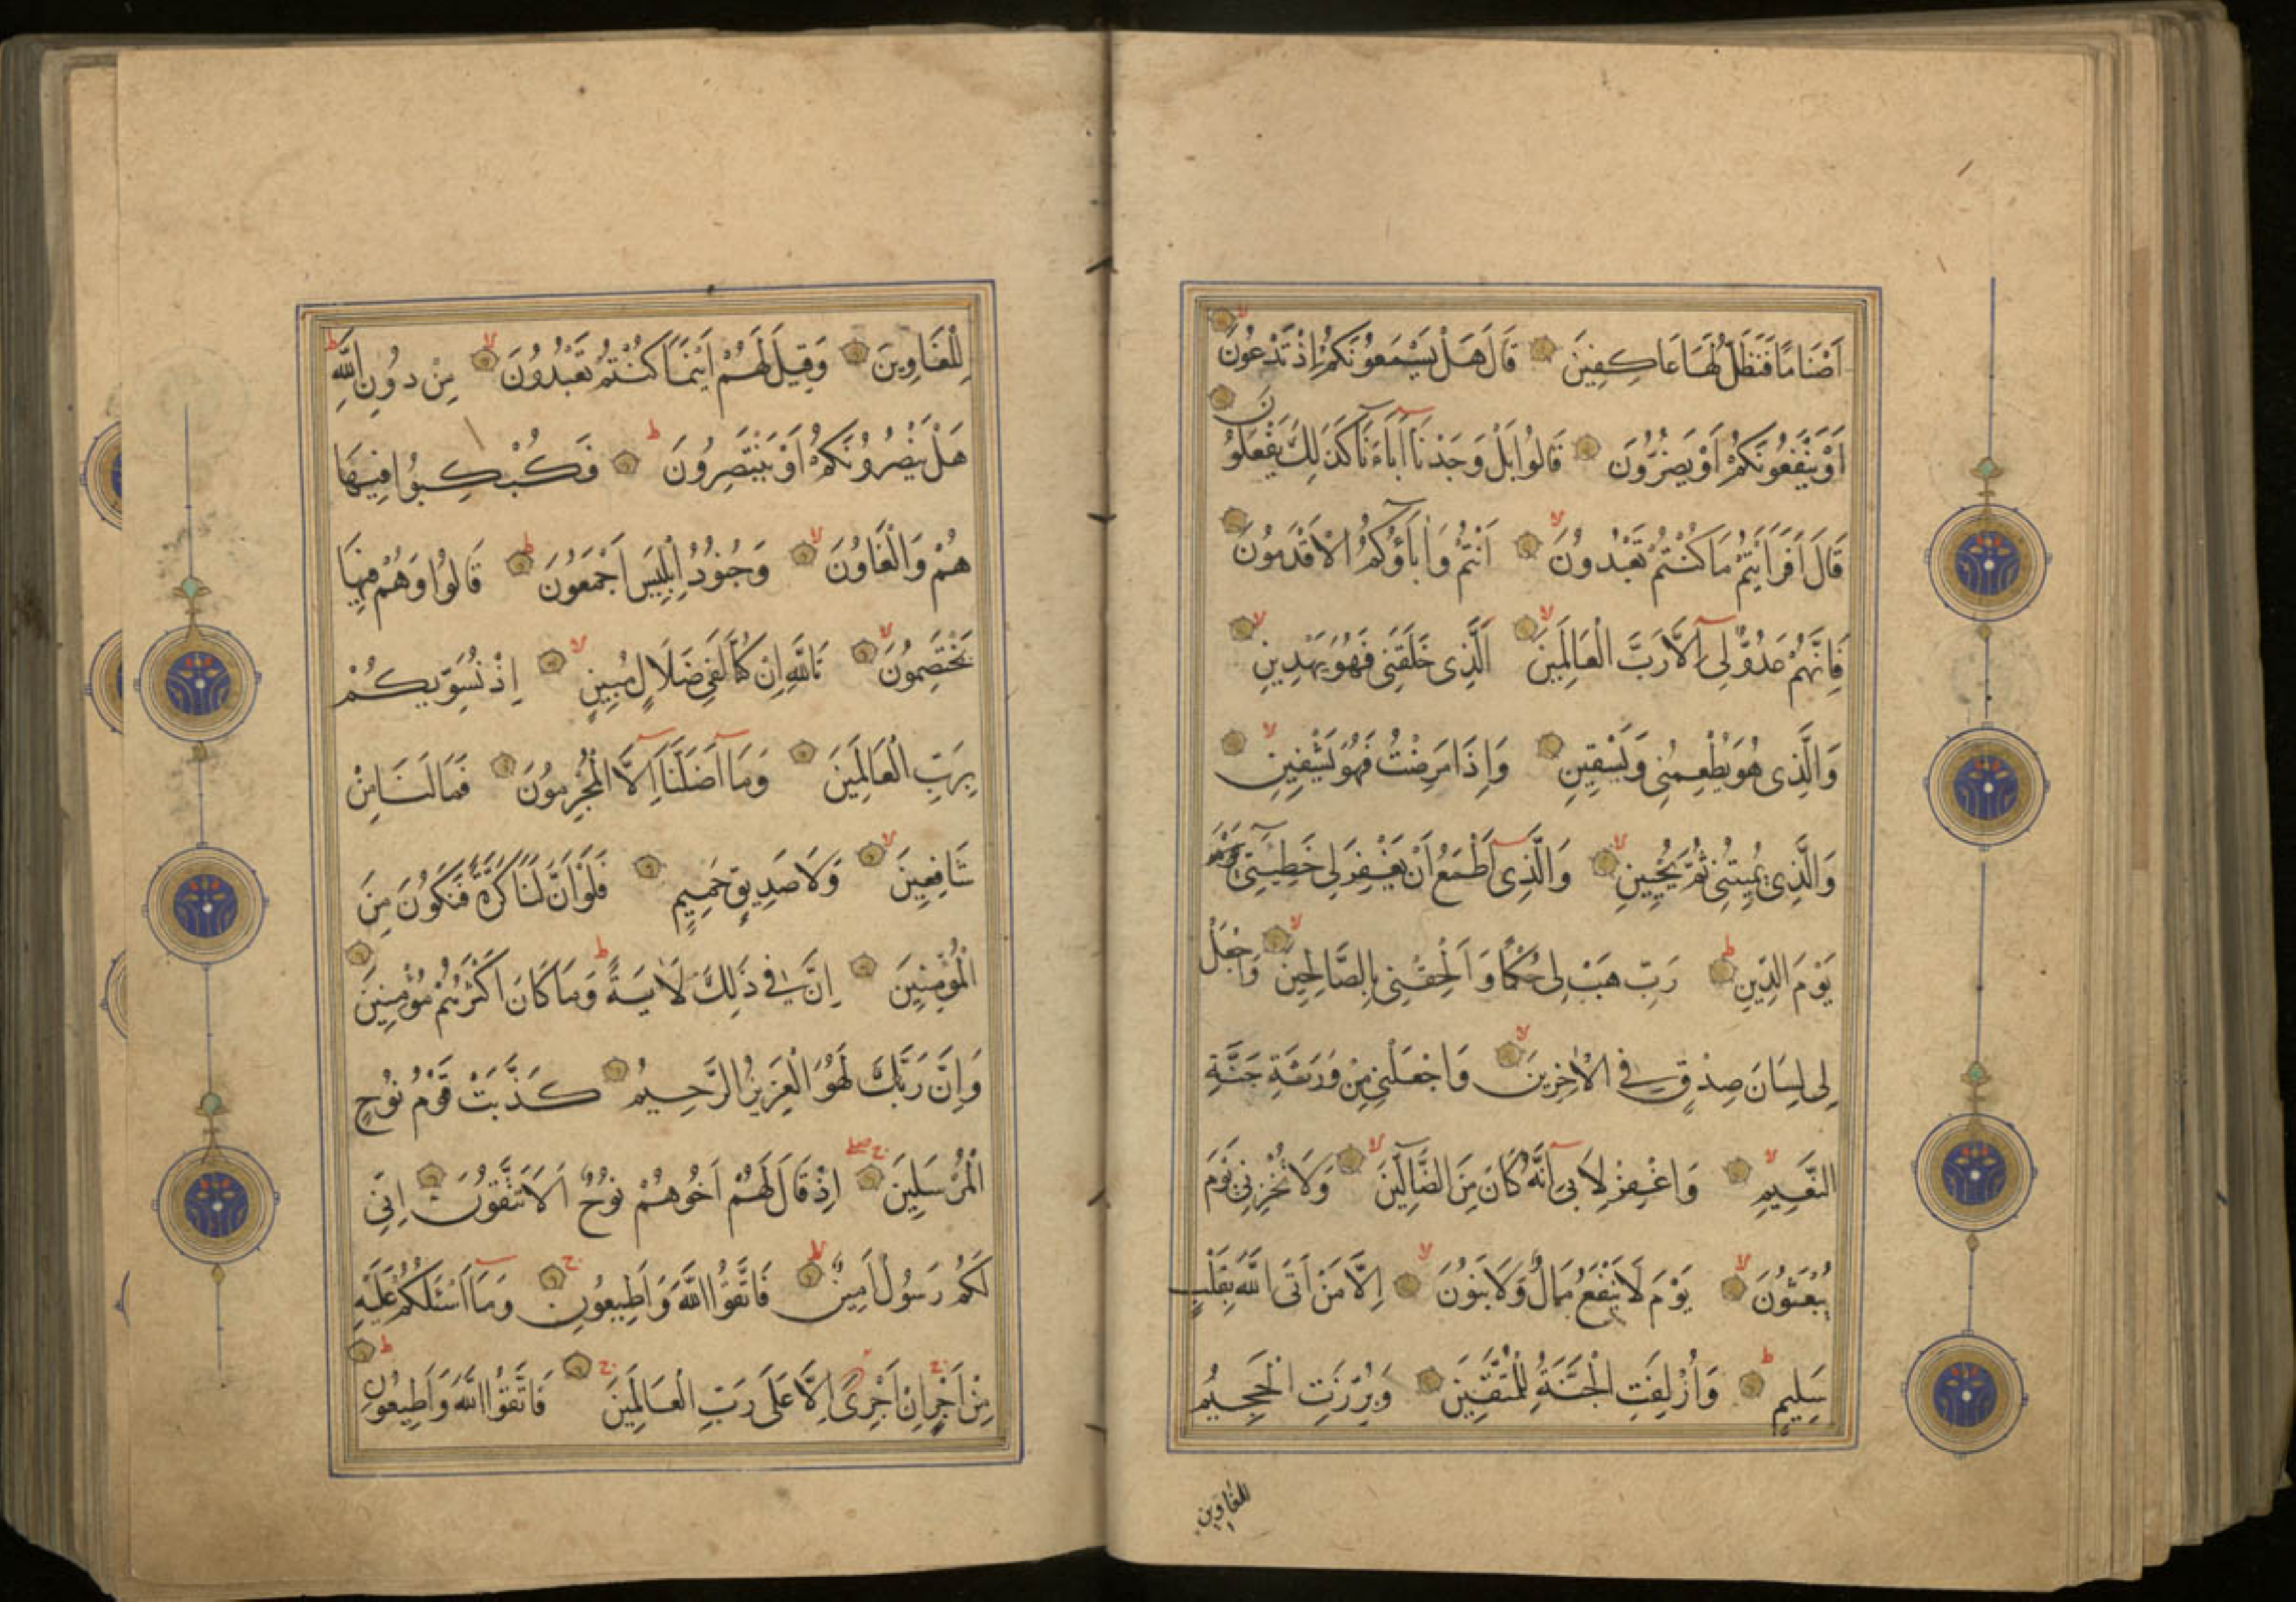 اَصْنَامًا فَنَظَلُّ لَهَا عَاكِفِينَ قَالَ هَلْ يَسْمَعُونَكُمْ اِذْ تَدْعُونَ
اَوْ يَنْفَعُونَكُمْ اَوْ يَضُرُّونَ قَالُوا بَلْ وَجَدْنَا آبَاءَنَا كَذَلِكَ يَفْعَلُونَ
قَالَ اَفَرَاَيْتُمْ مَا كُنْتُمْ تَعْبُدُونَ اَنْتُمْ وَاٰبَاؤُكُمُ الْاَقْدَمُونَ
فَاِنَّهُمْ عَدُوٌّ لِى اِلَّا رَبَّ الْعَالَمِينَ اَلَّذِى خَلَقَنِى فَهُوَ يَهْدِينِ
وَالَّذِى هُوَ يُطْعِمُنِى وَيَسْقِينِ وَاِذَا مَرِضْتُ فَهُوَ يَشْفِينِ
وَالَّذِى يُمِيتُنِى ثُمَّ يُحْيِينِ وَالَّذِى اَطْمَعُ اَنْ يَغْفِرَ لِى خَطِيئَتِى
يَوْمَ الدِّينِ رَبِّ هَبْ لِى حُكْمًا وَاَلْحِقْنِى بِالصَّالِحِينَ وَاجْعَلْ
لِى لِسَانَ صِدْقٍ فِى الْاٰخِرِينَ وَاجْعَلْنِى مِنْ وَرَثَةِ جَنَّةِ
النَّعِيمِ وَاغْفِرْ لِاَبِى اِنَّهُ كَانَ مِنَ الضَّالِّينَ وَلَا تُخْزِنِى يَوْمَ
يُبْعَثُونَ يَوْمَ لَا يَنْفَعُ مَالٌ وَلَا بَنُونَ اِلَّا مَنْ اَتَى اللّٰهَ بِقَلْبٍ
سَلِيمٍ وَاُزْلِفَتِ الْجَنَّةُ لِلْمُتَّقِينَ وَبُرِّزَتِ الْجَحِيمُ
للغاوين
لِلْغَاوِينَ وَقِيلَ لَهُمْ اَيْنَمَا كُنْتُمْ تَعْبُدُونَ مِنْ دُونِ اللّٰهِ
هَلْ يَنْصُرُونَكُمْ اَوْ يَنْتَصِرُونَ فَكُبْكِبُوا فِيهَا
هُمْ وَالْغَاوُنَ وَجُنُودُ اِبْلِيسَ اَجْمَعُونَ قَالُوا وَهُمْ فِيهَا
يَخْتَصِمُونَ تَاللّٰهِ اِنْ كُنَّا لَفِى ضَلَالٍ مُبِينٍ اِذْ نُسَوِّيكُمْ
بِرَبِّ الْعَالَمِينَ وَمَا اَضَلَّنَا اِلَّا الْمُجْرِمُونَ فَمَا لَنَا مِنْ
شَافِعِينَ وَلَا صَدِيقٍ حَمِيمٍ فَلَوْ اَنَّ لَنَا كَرَّةً فَنَكُونَ مِنَ
الْمُؤْمِنِينَ اِنَّ فِى ذَلِكَ لَاٰيَةً وَمَا كَانَ اَكْثَرُهُمْ مُؤْمِنِينَ
وَاِنَّ رَبَّكَ لَهُوَ الْعَزِيزُ الرَّحِيمُ كَذَّبَتْ قَوْمُ نُوحٍ
الْمُرْسَلِينَ اِذْ قَالَ لَهُمْ اَخُوهُمْ نُوحٌ اَلَا تَتَّقُونَ اِنِّى
لَكُمْ رَسُولٌ اَمِينٌ فَاتَّقُوا اللّٰهَ وَاَطِيعُونِ وَمَا اَسْئَلُكُمْ عَلَيْهِ
مِنْ اَجْرٍ اِنْ اَجْرِىَ اِلَّا عَلَى رَبِّ الْعَالَمِينَ فَاتَّقُوا اللّٰهَ وَاَطِيعُونِ